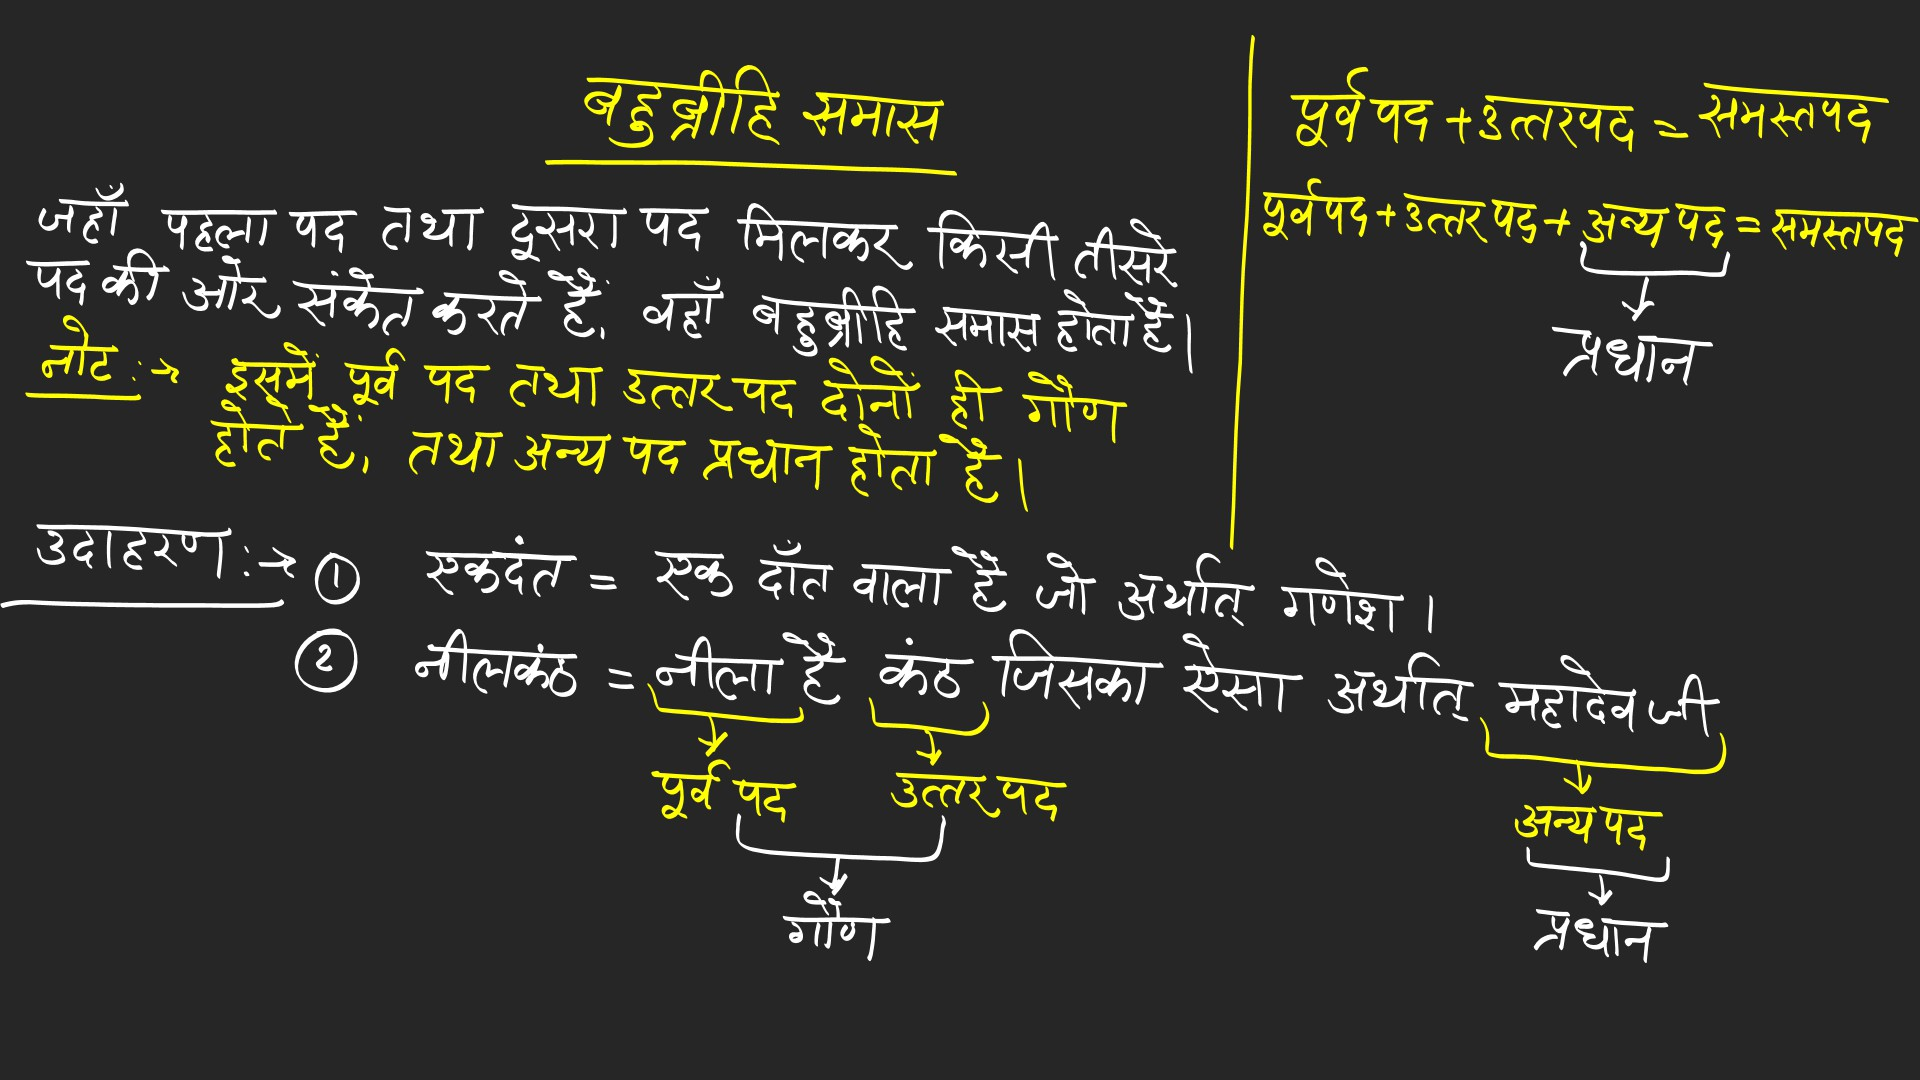 बहुब्रीहि समास
जहाँ पहला पद तथा दूसरा पद मिलकर किसी तीसरे
पद की ओर संकेत करते हैं, वहाँ बहुब्रीहि समास होता है।
नोट :→ इसमें पूर्व पद तथा उत्तर पद दोनों ही गौण
होते हैं, तथा अन्य पद प्रधान होता है।
पूर्व पद + उत्तरपद = समस्तपद
पूर्वपद + उत्तर पद + अन्य पद = समस्तपद
प्रधान
उदाहरण :→ ① एकदंत = एक दाँत वाला है जो अर्थात् गणेश।
② नीलकंठ = नीला है कंठ जिसका ऐसा अर्थात् महादेव जी
पूर्व पद उत्तर पद अन्य पद
गौण प्रधान